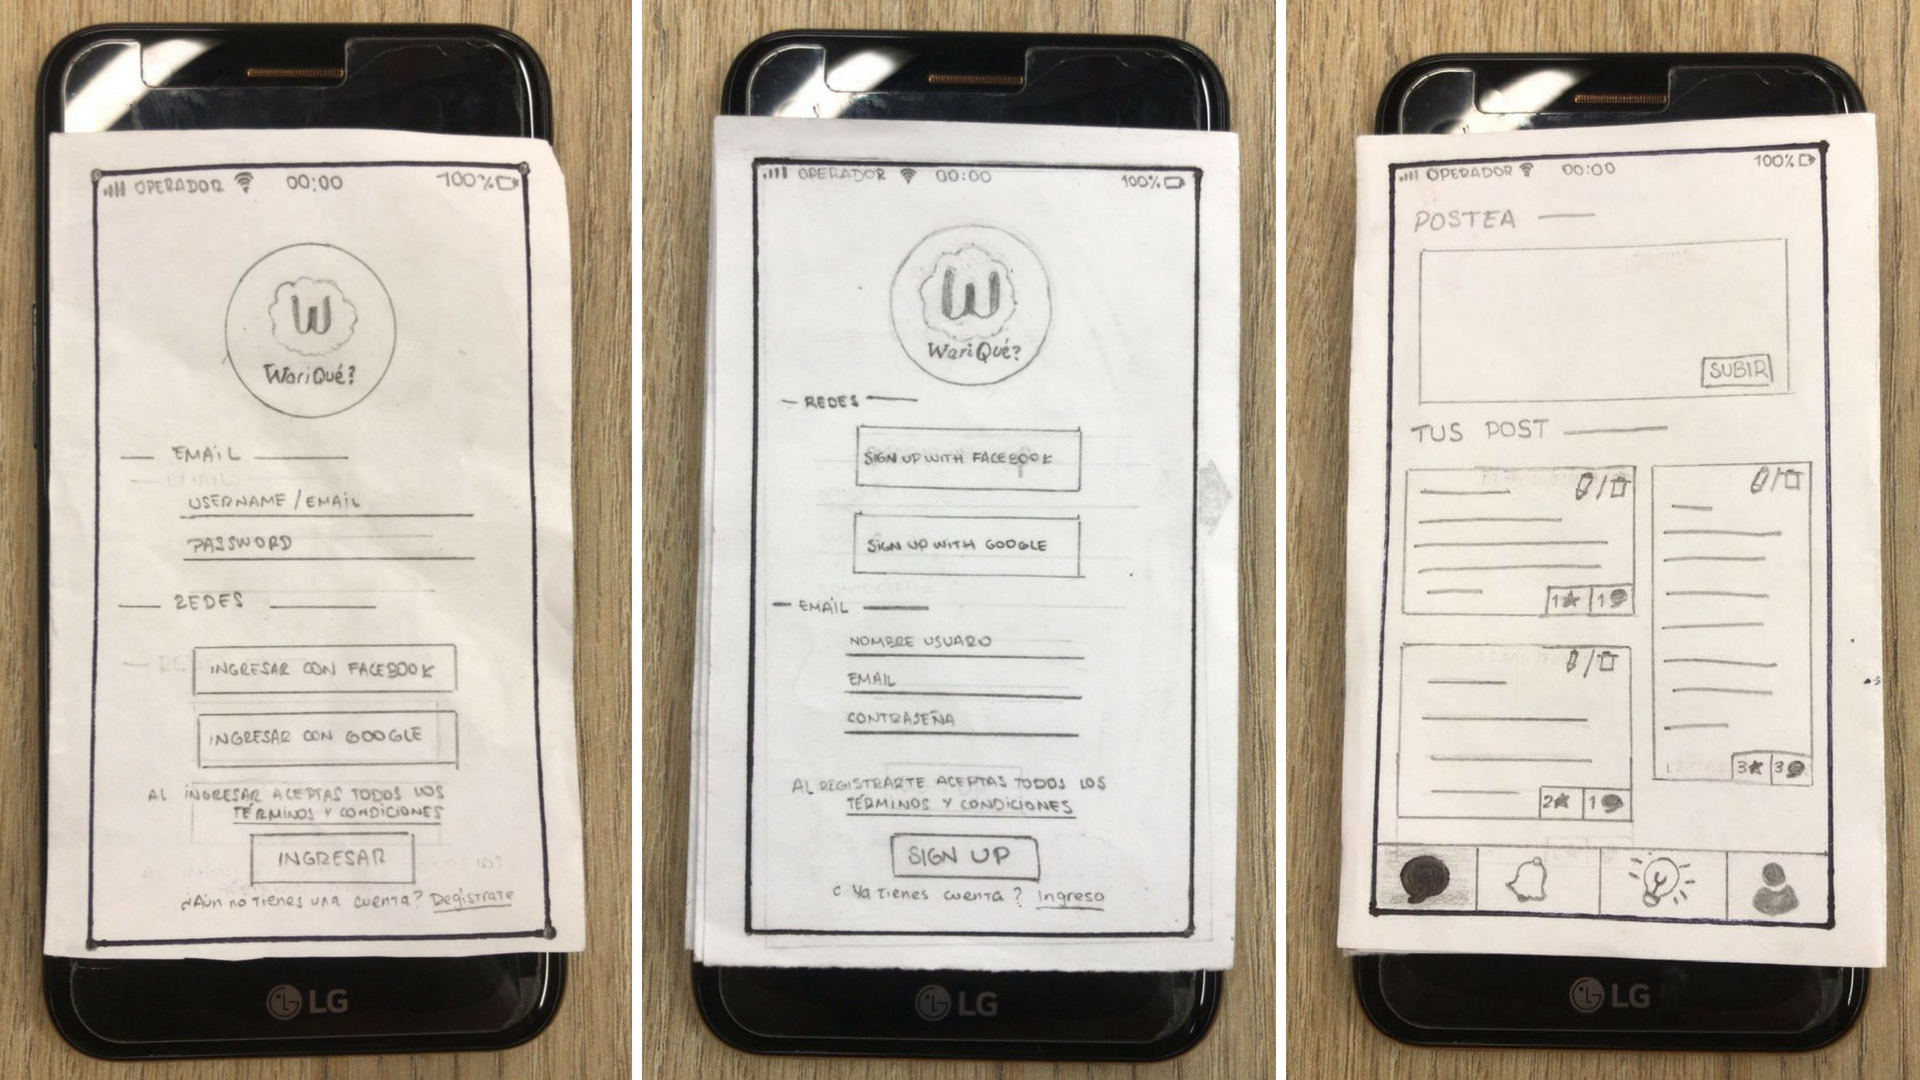 OPERADOR 00:00 100%
W
WariQué?
EMAIL
USERNAME / EMAIL
PASSWORD
REDES
INGRESAR CON FACEBOOK
INGRESAR CON GOOGLE
AL INGRESAR ACEPTAS TODOS LOS
TÉRMINOS Y CONDICIONES
INGRESAR
¿Aún no tienes una cuenta? Registrate
LG
OPERADOR 00:00 100%
W
WariQué?
REDES
SIGN UP WITH FACEBOOK
SIGN UP WITH GOOGLE
EMAIL
NOMBRE USUARO
EMAIL
CONTRASEÑA
AL REGISTRARTE ACEPTAS TODOS LOS
TÉRMINOS Y CONDICIONES
SIGN UP
¿ Ya tienes cuenta ? Ingreso
LG
OPERADOR 00:00 100%
POSTEA
SUBIR
TUS POST
1 1
2 1
3 3
LG